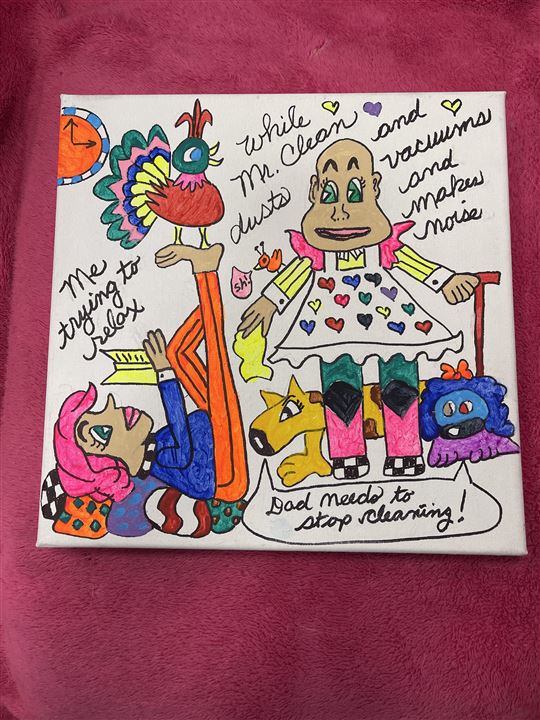 Me
trying to
relax
While
Mr. Clean
dusts
and
vacuums
and
makes
noise
sh!
Dad needs to
stop cleaning!